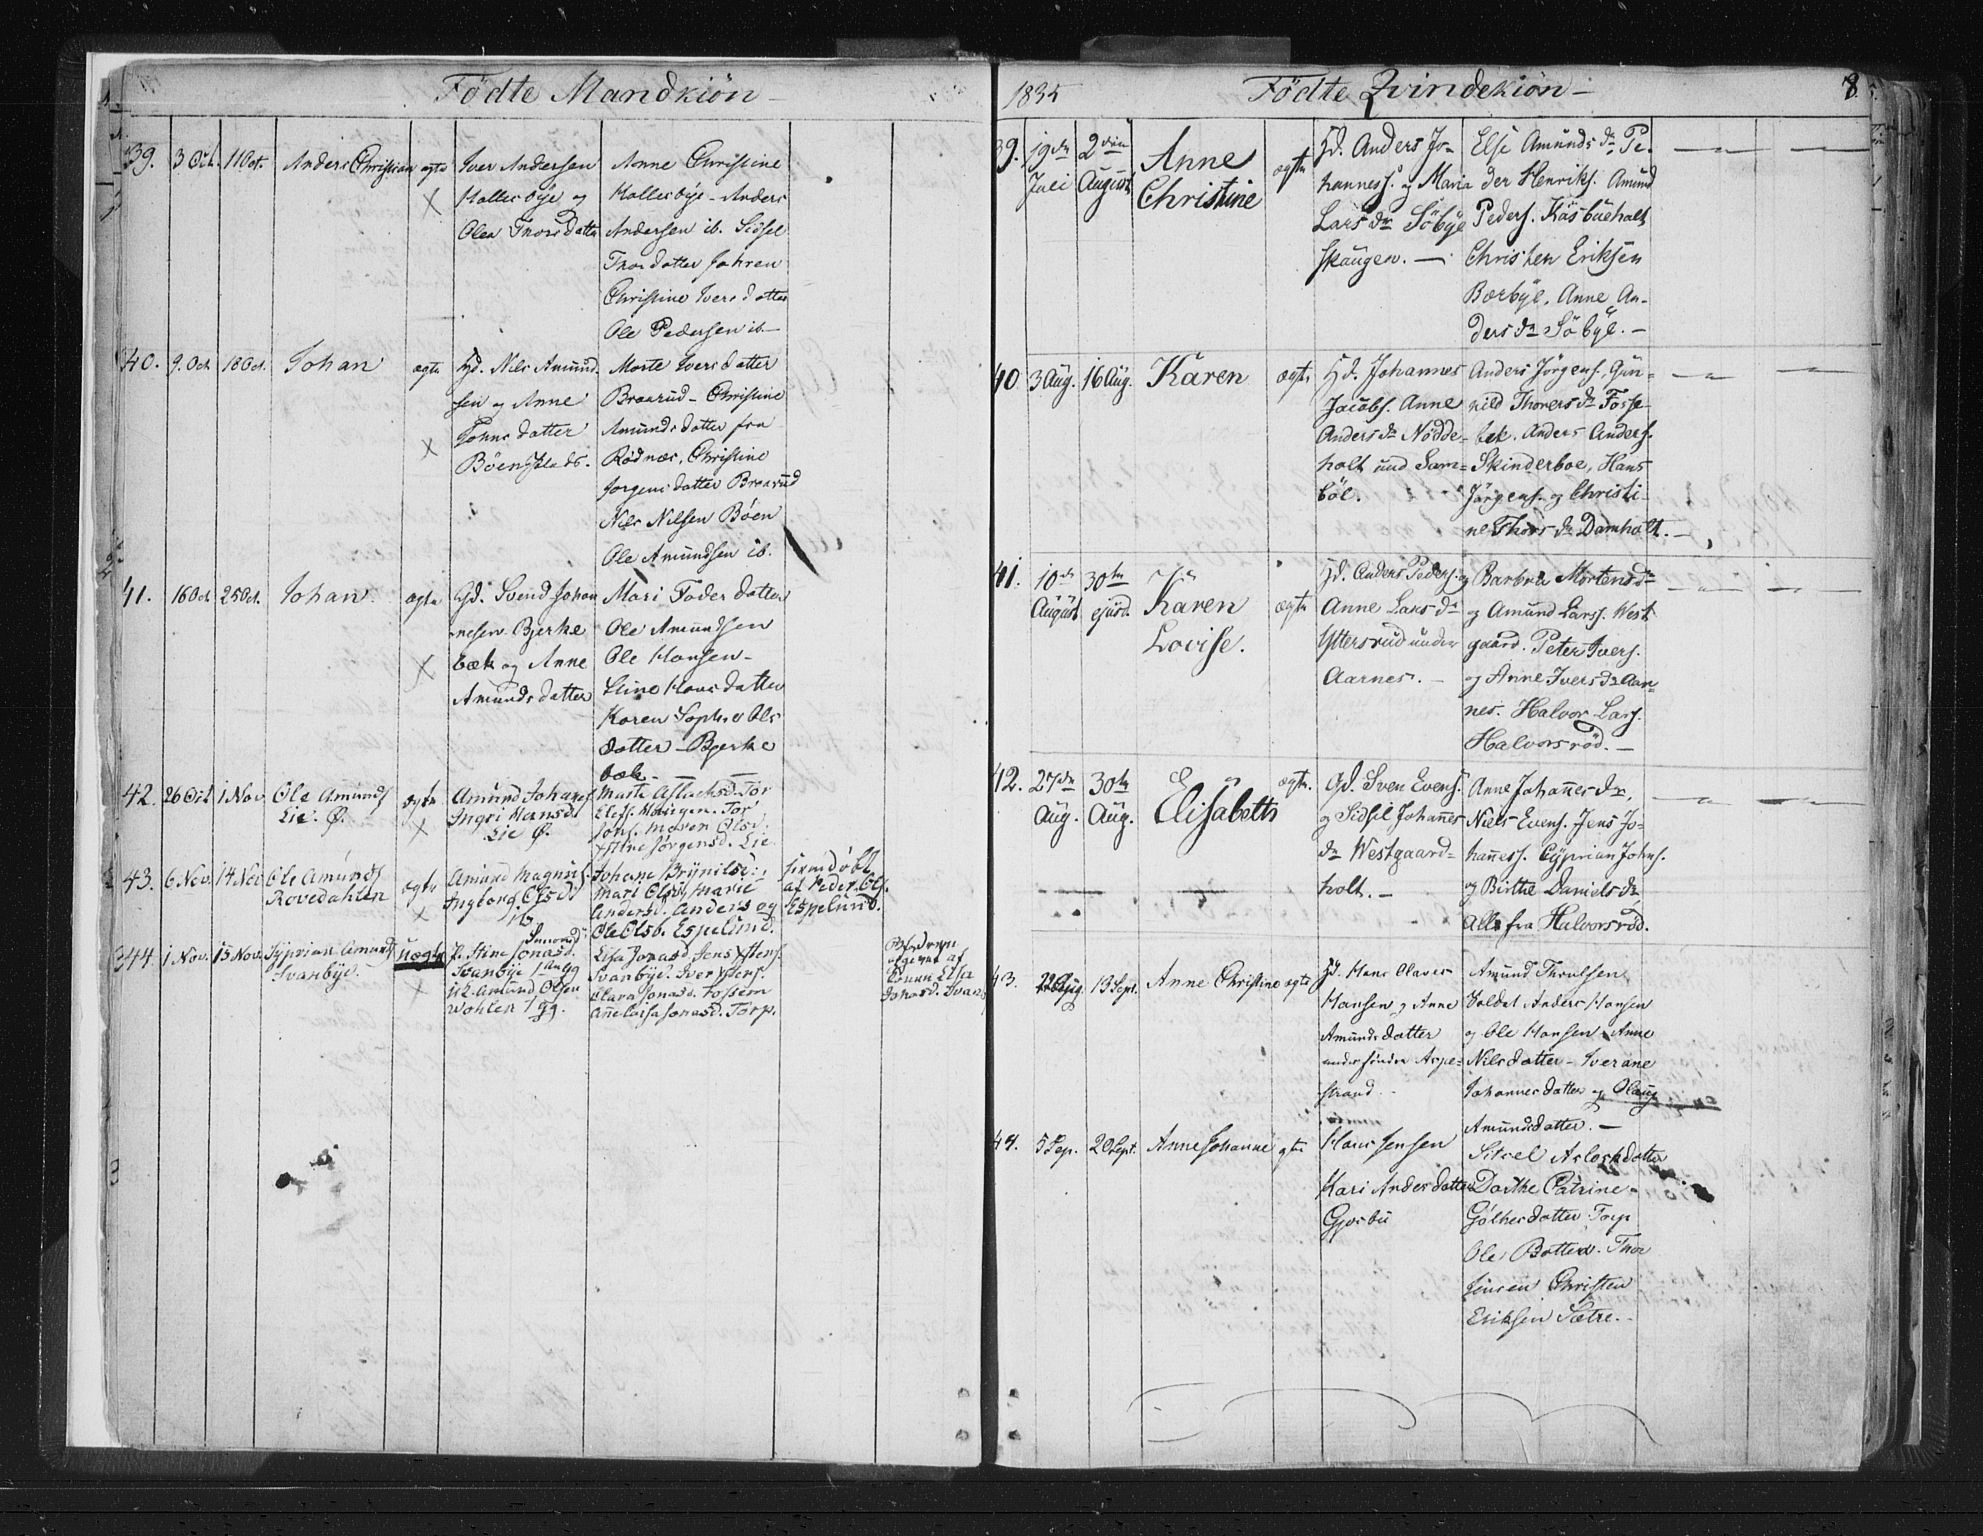 Födte Mandkiön
39.
3 Oct.
11 Oct.
Anders Christian
ægte
Iver Andersen
Hallesbye og
Olea Thorsdatter
Anne Christine
Hallesbye - Anders
Andersen ib. Sidsel
Thorsdatter Jahren
Christine Iversdatter
Ole Pedersen ib.
40.
9. Oct.
18 Oct.
Johan
ægte
Gd. Nils Amund
sen og Anne
Johnsdatter
Böenstads.
Marte Iversdatter
Braarud - Christine
Amundsdatter fra
Rödnæs, Christine
Jorgensdatter Braarud
Nils Nilsen Böen
Ole Amundsen ib.
41.
16 Oct.
25 Oct.
Johan.
ægte
Gd. Svend Johan
nesen Bjerke
bæk og Anne
Amundsdatter
Mari Pedersdatter
Ole Amundsen
Ole Hansen -
Stine Hansdatter
Karen Sophie Ols
datter - Bjerke
bæk -
42.
26 Oct
1 Nov.
Ole Amunds
Lie. Ø.
ægte
Amund Johans
Ingri Hansd.
Lie Ø.
Marte Aslachsd. Tor
Jörgensd. Lie
43.
6 Nov.
14 Nov
Ole Amunds
Rovedahlen
ægte
Amund Magnus.
Ingborg Olsd.
ib
Johane Brynilsd.
Mari Olsd. Marie
Andersd. Anders og
Ole Olss. Espelund.
hiemdöbt
af Peder Ols.
Espelund.
44.
1 Nov.
15 Nov.
Syprian Amunds
Svanbye.
uægte
P. Stine Jonasd.
Svanbye 1 gg
U.K. Amund Olsen
Wohlen 1 gg.
Lisa Jonasd. Jens
Svanbye. Iver
Clara Jonasd. Fossem
Anne Caisa Jonasd. Torp.
Faderen
opgivet af
Konen Lisa
Jonasd. Svanb
1835
Födte Qvindekiön -
8
39.
19de
Juli
2den
August
Anne
Christine
ægte
Gd. Anders Jo-
hanness. og Maria
Lars Dr Söbye
skaugen. -
Else Amunds Dr, Pe-
der Henriks. Amund
Peders. Käsbüeholt
Christen Eriksen
Bærbye, Anne An-
ders Dr Söbye. -
40
3 Aug.
16 Aug.
Karen
ægte
Gd. Johannes
Jacobs. Anne
Anders Dr Nödde-
holt und Sam-
böl.
Anders Jörgens, Gun-
nild Thorers Dr Fosse-
bek. Anders Anders.
Skinderboe, Hans
Jörgens. og Christi-
ne Thors Dr Damholt. -
41.
10de
August
30te
ejusd.
Karen
Lovise.
ægte
Gd. Anders Peders. og
Anne Lars Dr
Yttersrud under
Aarnes. -
Barbra Mortens Dr
og Amund Larss. West
gaard. Peter Ivers.
og Anne Ivers Dr Aar-
nes. Halvor Lars.
Halvorsröd. -
42.
27de
Aug.
30te
Aug.
Elisabeth
ægte.
Gd. Sven Evens.
og Sidsel Johannes
Dr Westgaard-
holt. -
Anne Johannes Dr,
Niels Evens. Jens Jo-
hanness. Cyprian Johns.
og Birthe Daniels Dr
Alle fra Halvorsröd.
43.
Aug.
13 Sept.
Anne Christine
ægte
Gd. Hans Olaves
Hansen og Anne
Amundsdatter
under söndre Aspe-
strand -
Amund Thrulsen
Soldat Anders Hansen
og Ole Hansen - Anne
Nilsdatter - Iverane
Johannesdatter og Olaug
Amundsdatter. -
44.
5 Sep.
20 Sept.
Anne Johanne
ægte
Hans Jensen
Kari Andersdatter
Gjosbu
Sitsel Asloskdatter
Dorthe Catrine -
Gölhesdatter Torp
Ole Botters. Thor
Jensen Christen
Eriksen Sætre.